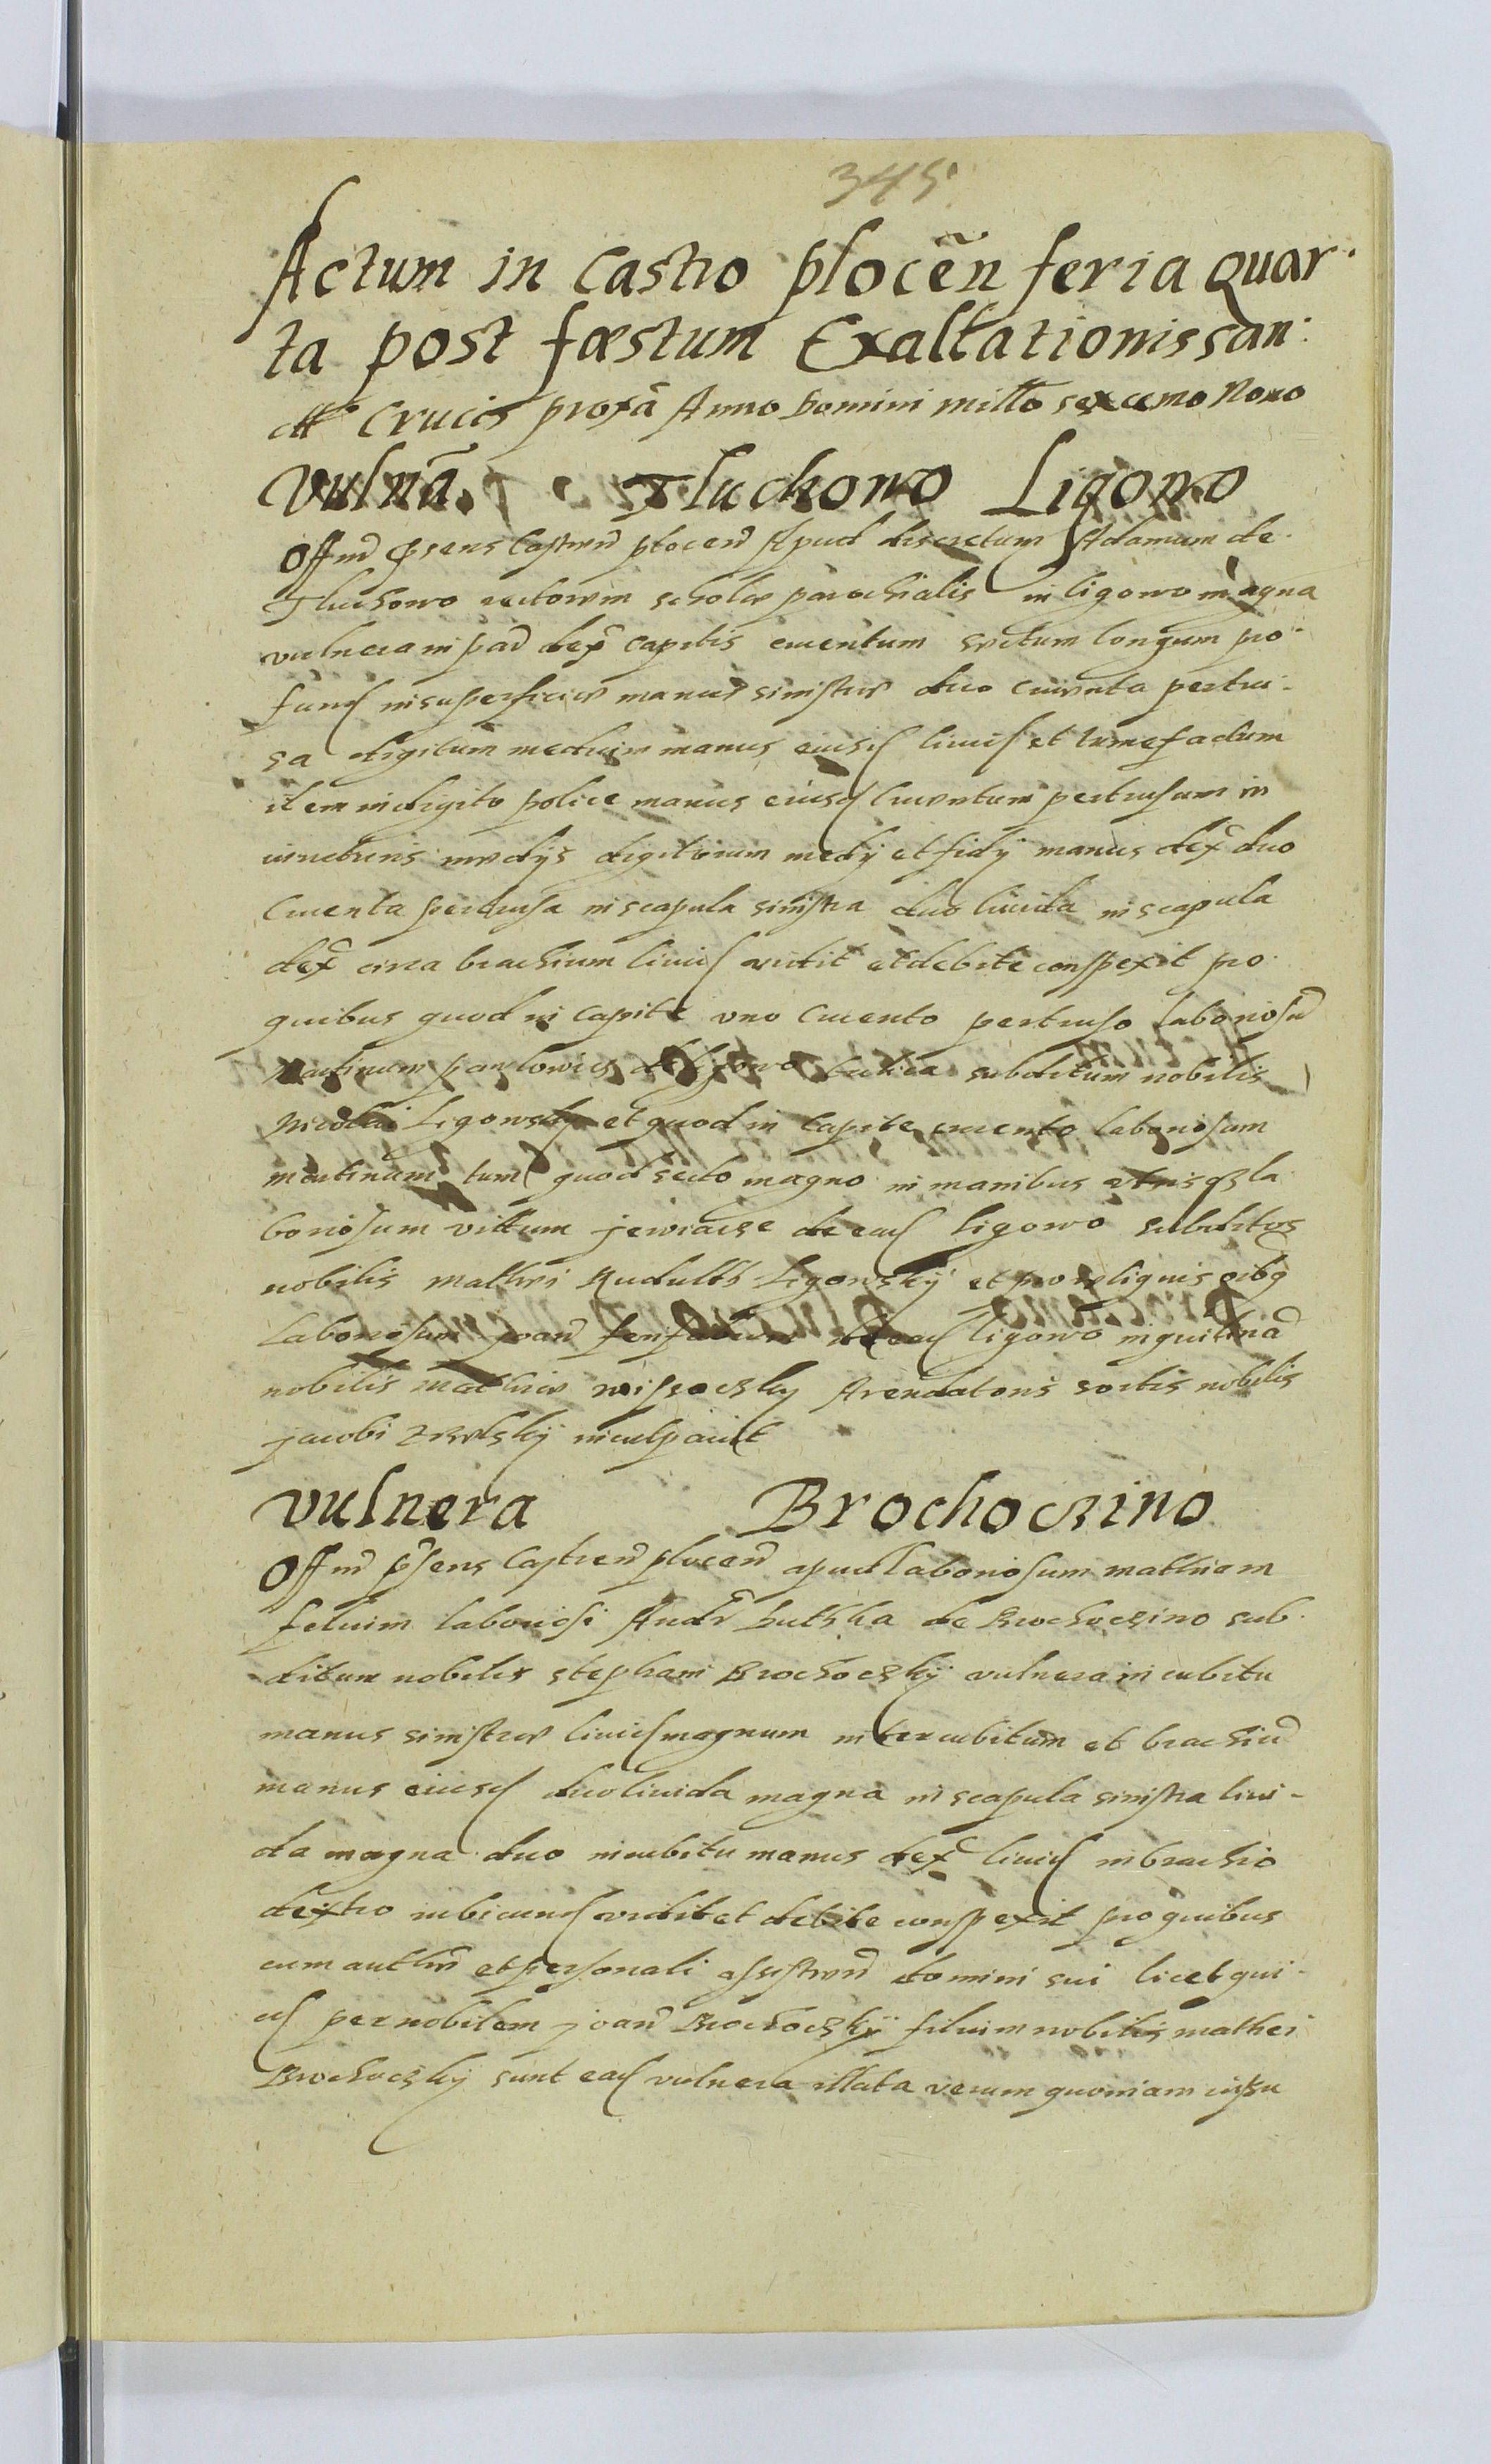 345
Actum in Castro plocen̄ feria quar
ta post fæstum Exaltationis san:
ctæ Crucis proxã Anno Domini millo sexcemo Nono
Vulnã. Tluchowo Ligowo
Offm̃ psens Castren̄ plocen̄ Apud discretum Adamum de
Tluchowo rectorem scholæ parochialis in ligowo magna
vulnera in par̄ dex̄ capitis cruentum sectum longum pro
fund in superficie manus sinistræ duo cruenta pertu-
sa digitum medium manus eiusd livid et tumefactum
item in digito police manus eiusd Cruentum pertusum in
iuncturis medijs digitorum medij et manus dex̄ duo
Cruenta pertusa in scapula sinistra duo livida in scapula
dex̄ circa brachium livid vidit et debite conspexit pro
quibus quod in Capite uno Cruento pertuso laboriosũ
Martinum pawlowicz de ligowo subditum nobilis
Nicolai Ligowsky et quod in Capite cruento laboriosum
martinum tum quod secto magno in manibus la
boriosum vittum de ead ligowo subditos
nobilis mathei Ligowskij et pro reliquis oibq
Laboriosum joan̄ de ead ligowo inquilinũ
nobilis mathiæ wissoczky Arendatoris sortis nobilis
jacobi inculpavit
Vulnera Brochoczino
Offm̃ psens Castren̄ plocen̄ apud laboriosum mathiam
filium laboriosi Andr̄ huthka de Brochoczino sub
ditum nobilis stephani Brochoczkij vulnera in cubitu
manus sinistræ livid magnum inter cubitum et brachiũ
manus eiusd duo livida magna in scapula sinistra livi-
da magna duo in cubitu manus dex̄ livid in brachio
dextro rubicund vidit et debite conspexit pro quibus
cum et personali assisten̄ domini sui licet qui
d per nobilem joan̄ Brochoczkij filium nobilis mathei
Brochoczkij sunt ead vulnera illata verum quoniam iussu